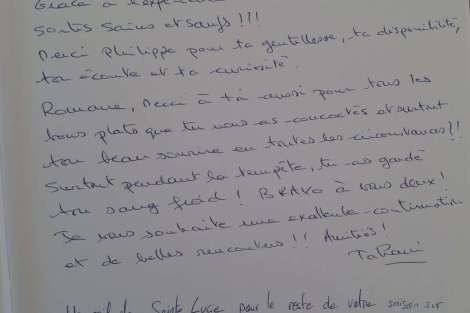 Grâce à l'expérien
sortis sains et saufs !!!
Merci Philippe pour ta gentillesse, ta disponibilité,
ton écoute et ta curiosité.
Romane, Merci à toi aussi pour tous les
bons plats que tu nous as concoctés et surtout
ton beau sourire en toutes les circonstances !!
Surtout pendant la tempête, tu as gardé
ton sang froid ! BRAVO à vous deux !
Je vous souhaite une excellente continuation
et de belles rencontres !! Amitiés !
Sainte Lucie pour le reste de votre saison sur